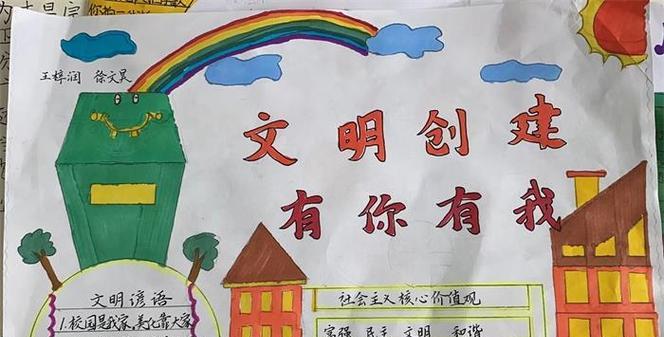 王梓润 徐文昊
文明创建
有你有我
文明谚语
1.校园是我家,美化靠大家
社会主义核心价值观
富强 民主 文明 和谐